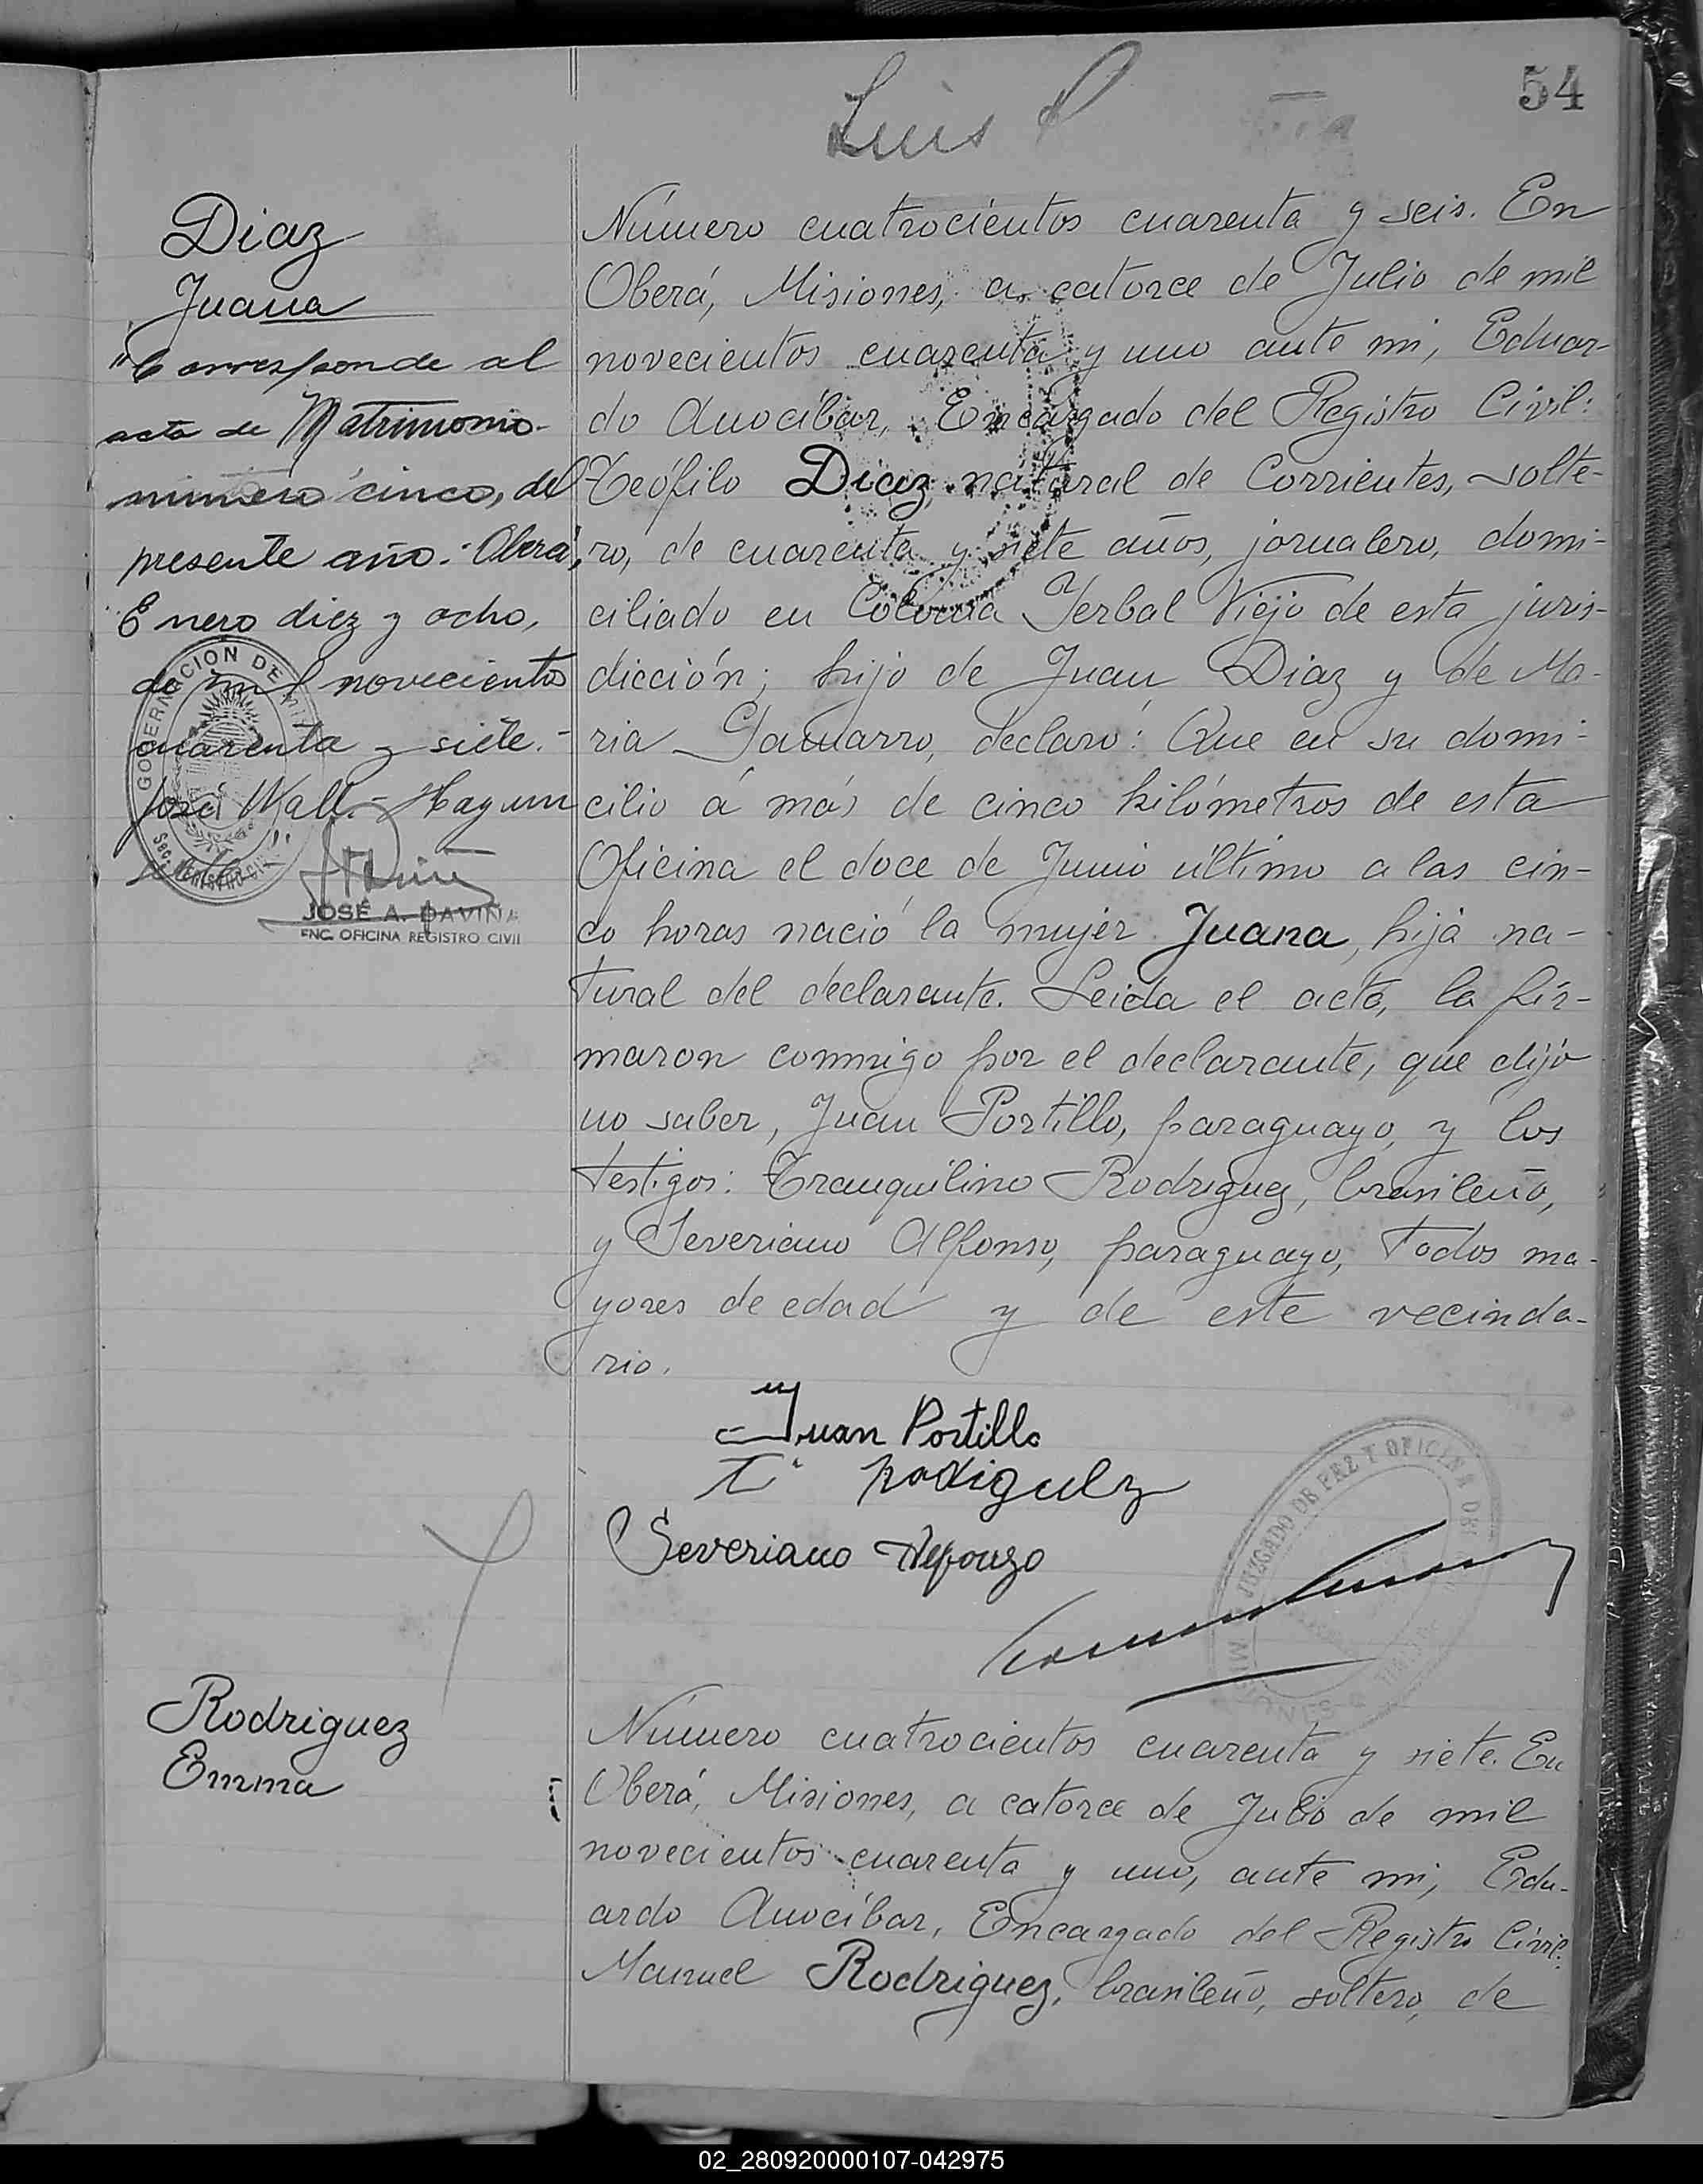 54
Luis P
Diaz
Juana
"Corresponde al
acta de Matrimonio
número cinco, del
presente año.- Oberá,
Enero diez y ocho,
de mil novecientos
cuarenta y siete.-
José Wall.- Hay un
sello".
GOBERNACION DE MI
SEC. REGISTRO CIVIL
JOSÉ A. DAVIÑA
ENC. OFICINA REGISTRO CIVIL
Número cuatrocientos cuarenta y seis. En
Oberá, Misiones, a catorce de Julio de mil
novecientos cuarenta y uno ante mi, Eduar-
do Anocíbar, Encargado del Registro Civil:
Teófilo Diaz, natural de Corrientes, solte-
ro, de cuarenta y siete años, jornalero, domi-
ciliado en Colonia Yerbal Viejo de esta juris-
dicción; hijo de Juan Diaz y de Ma-
ria Gamarro, declaró: Que en su domi-
cilio á más de cinco kilómetros de esta
Oficina el doce de Junio último a las cin-
co horas nació la mujer Juana, hija na-
tural del declarante. Leida el acta, la fir-
maron conmigo por el declarante, que dijo
no saber, Juan Portillo, paraguayo, y los
testigos: Tranquilino Rodriguez, brasileño,
y Severiano Alfonso, paraguayo, todos ma-
yores de edad y de este vecinda-
rio.
Juan Portillo
T. Rodiguelz
Severiano Alfonzo
JUZGADO DE PAZ Y OFICINA DEL
MISIONES
Rodriguez
Emma
Número cuatrocientos cuarenta y siete. En
Oberá, Misiones, a catorce de Julio de mil
novecientos cuarenta y uno, ante mi, Edu-
ardo Anocíbar, Encargado del Registro Civil:
Manuel Rodriguez, brasileño, soltero, de
02_280920000107-042975